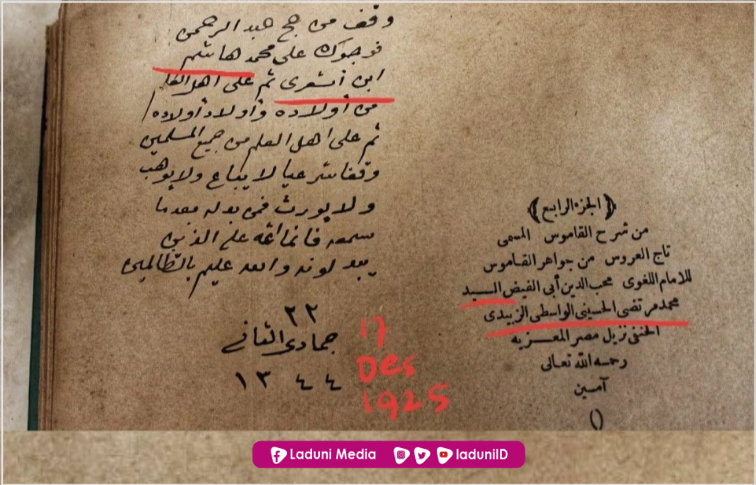 وقف من حج عبد الرحمن
فوجوك على محمد هاشم
ابن أشعرى ثم على اهل العلم
من أولاده وأولاد أولاده
ثم على اهل العلم من جميع المسلمين
وقفا شرعيا لا يباع ولا يوهب
ولا يورث فمن بدله بعد ما
سمعه فانما اثمه على الذين
يبدلونه والله عليم بالظالمين
٢٢
جمادى الثانى
١٣٤٤
17
Des
1925
﴿الجزء الرابع﴾
من شرح القاموس المسمى
تاج العروس من جواهر القاموس
للامام اللغوى محب الدين أبى الفيض السيد
محمد مرتضى الحسينى الواسطى الزبيدى
الحنفى نزيل مصر المعزيه
رحمه الله تعالى
آمين
()
Laduni Media laduniID